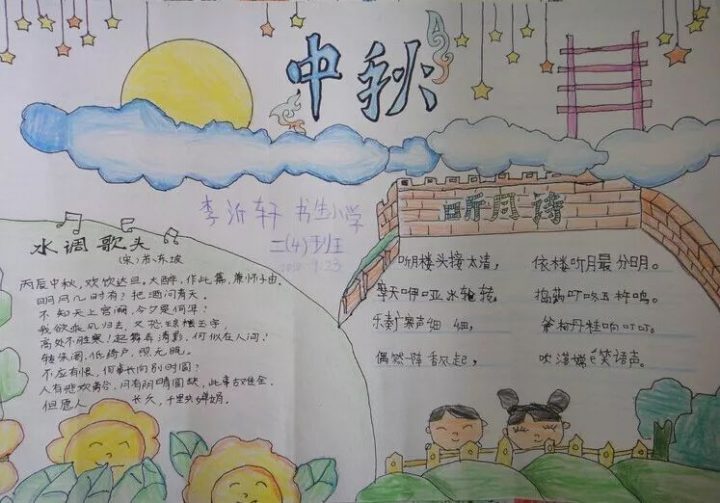 中秋
李沂轩 书生小学
二(4)班
2018.9.23
水调歌头
(宋)苏东坡
丙辰中秋,欢饮达旦。大醉,作此篇,兼怀子由。
明月几时有?把酒问青天。
不知天上宫阙,今夕是何年?
我欲乘风归去,又恐琼楼玉宇,
高处不胜寒!起舞弄清影,何似在人间!
转朱阁,低绮户,照无眠。
不应有恨,何事长向别时圆?
人有悲欢离合,月有阴晴圆缺,此事古难全。
但愿人长久,千里共婵娟。
听月诗
听月楼头接太清,依楼听月最分明。
摩天咿哑冰轮转,捣药叮咚玉杵鸣。
乐奏广寒声细细,斧柯丹桂响叮叮。
偶然一阵香风起,吹落嫦笑语声。